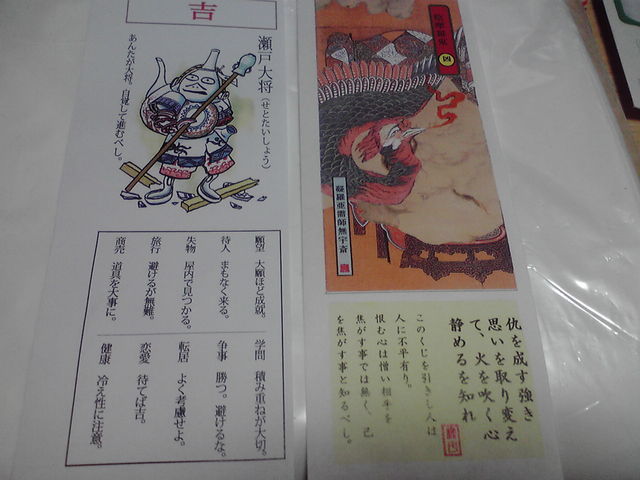 吉
瀬戸大将(せとたいしょう)
あんたが大将。自覚して進むべし。
願望 大願ほど成就。
待人 まもなく来る。
失物 屋内で見つかる。
旅行 避けるが無難。
商売 道具を大事に。
学問 積み重ねが大切。
争事 勝つ。避けるな。
転居 よく考慮せよ。
恋愛 待てば吉。
健康 冷え性に注意。
陰摩羅鬼
凶
仇を成す強き
思いを取り変え
て、火を吹く心
静めるを知れ
このくじを引きし人は
人に不平有り。
恨む心は憎い相手を
焦がす事では無く、己
を焦がす事と知るべし。